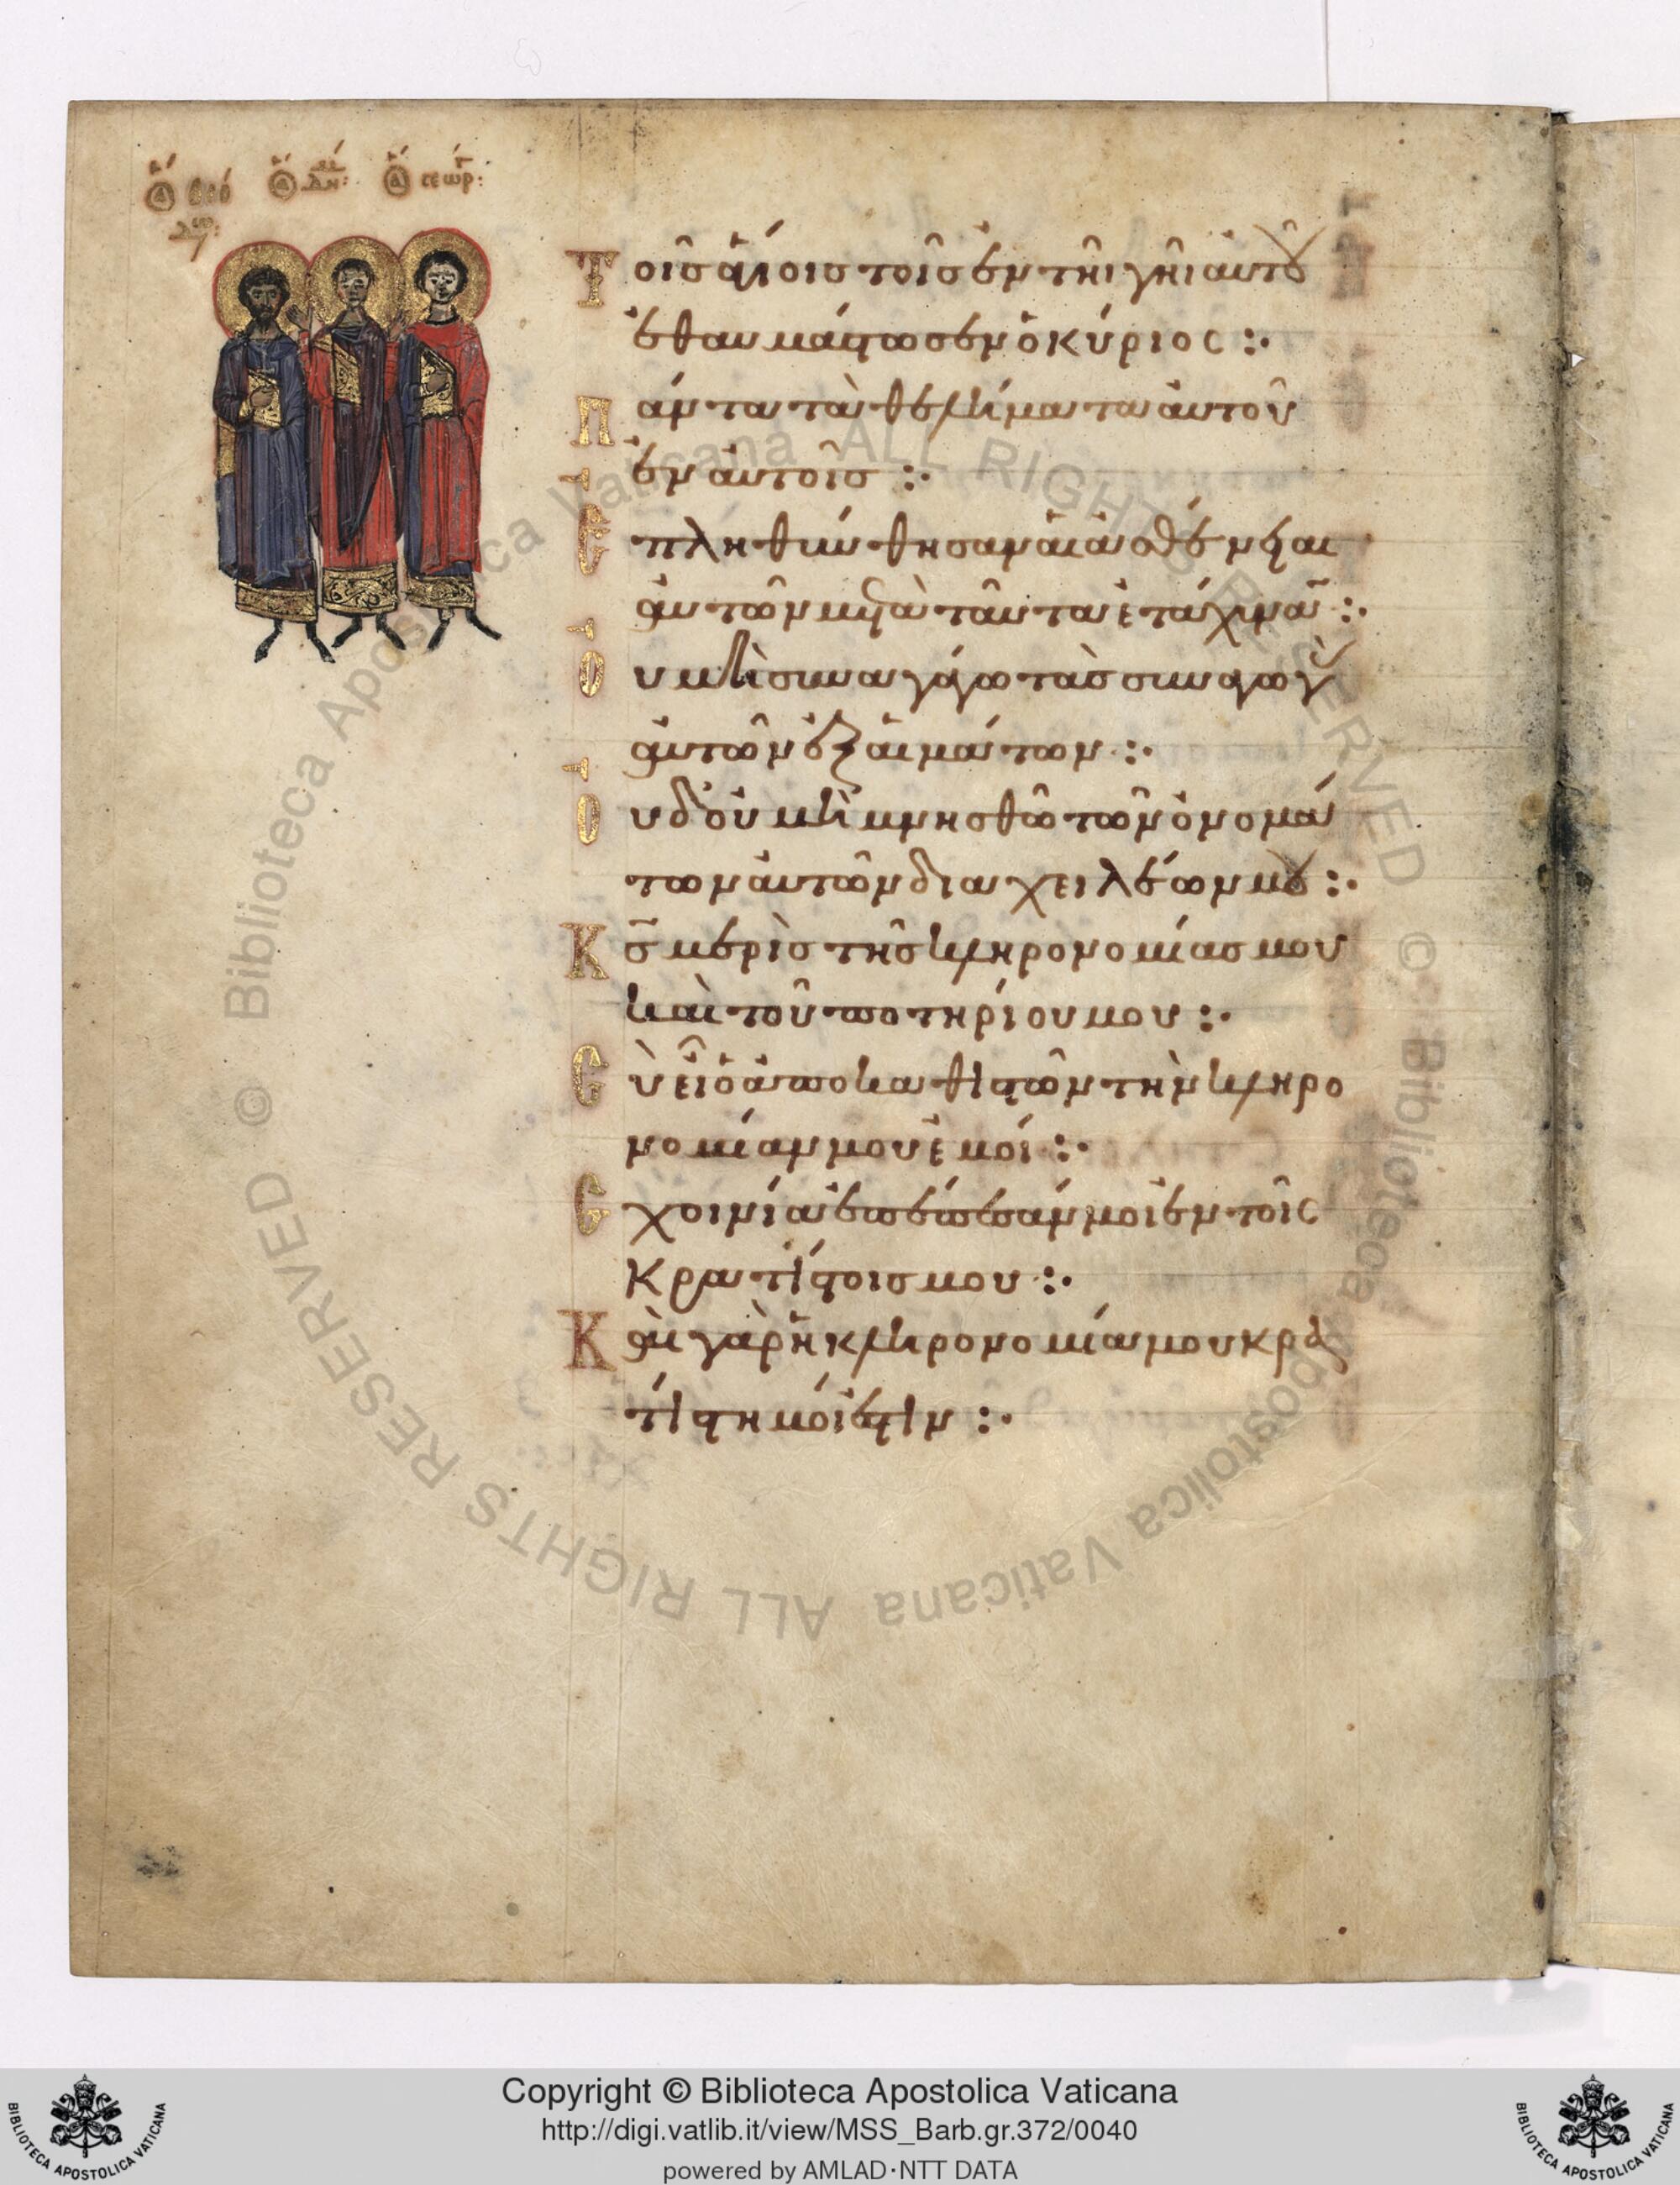 Ὁ ἅ Θεό
δωρ:
Ὁ ἅ Δη:
Ὁ ἅ Γεώρ:
Τοῖς ἁγίοις τοῖς ἐν τῆι γῆι ἀυτοῦ
ἐθαυμάστωσεν ὁ κύριος :·
Πάντα τὰ θελήματα ἀυτοῦ
ἐν ἀυτοῖς :·
Ἐπληθύνθησαν ἁι ἀσθένειαι
ἀυτῶν μετὰ ταῦτα ἐτάχυναν :·
Ὀυ μὴ συναγάγω τὰς συναγωγὰς
ἀυτῶν ἐξ ἁιμάτων :·
Ὀυδ' ὀυ μὴ μνησθῶ τῶν ὀνομά
των ἀυτῶν δια χειλέων μου :·
Κς μερὶς τῆς κληρονομίας μου
καὶ τοῦ ποτηρίου μου :·
Σὺ εἶ ὁ ἀποκαθιστῶν τὴν κληρο
νομίαν μου ἐμοί :·
Σχοινία ἐπέπεσάν μοι ἐν τοῖς
κρατίστοις μου :·
Καὶ γὰρ ἡ κληρονομία μου κρα
τίστη μοί ἐστιν :·
© Biblioteca Apostolica Vaticana ALL RIGHTS RESERVED © Biblioteca Apostolica Vaticana ALL RIGHTS RESERVED
Copyright © Biblioteca Apostolica Vaticana
http://digi.vatlib.it/view/MSS_Barb.gr.372/0040
powered by AMLAD·NTT DATA
BIBLIOTECA APOSTOLICA VATICANA
BIBLIOTECA APOSTOLICA VATICANA